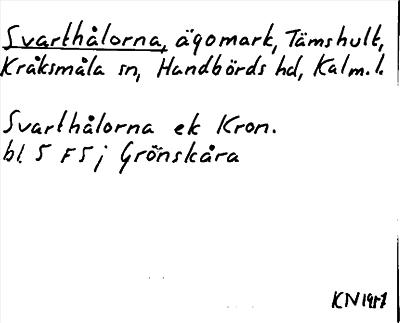 Svarthålorna, ägomark, Tämshult,
Kråksmåla sn, Handbörds hd, Kalm. l.
Svarthålorna ek Kron.
bl. 5 F 5 j Grönskåra